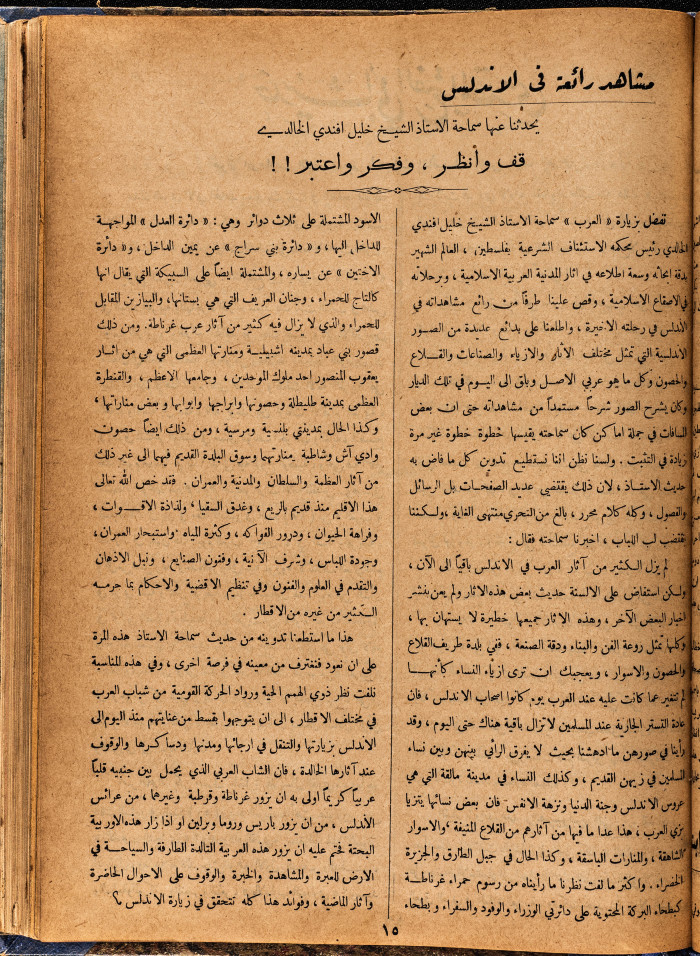 مشاهد رائعة فى الاندلس
يحدثنا عنها سماحة الاستاذ الشيخ خليل افندي الخالدي
قف وأنظر ، وفكر واعتبر ! !
تفضل بزيارة « العرب » سماحة الاستاذ الشيخ خليل افندي
الخالدي رئيس محكمه الاستئناف الشرعية بفلسطين ، العالم الشهير
بدقة ابحاثه وسعة اطلاعه في اثار المدنية العربية الاسلامية ، وبرحلاته
في الاصقاع الاسلامية ، وقص علينا طرفاً من رائع مشاهداته في
الأندلس في رحلته الاخيرة ، واطلعنا على بدائع عديدة من الصور
الاندلسية التي تمثل مختلف الأثار والازياء والصناعات والقلاع
والحصون وكل ما هو عربي الاصل وباق الى اليوم في تلك الديار
وكان يشرح الصور شرحاً مستمداً من مشاهداته حتى ان بعض
المسافات في جملة اماكن كان سماحته يقيسها خطوة خطوة غير مرة
زيادة في التثبت . ولسنا نظن اننا نستطيع تدوين كل ما فاض به
حديث الاستاذ ، لان ذلك يقتضي عديد الصفحات بل الرسائل
والفصول ، وكله كلام محرر ، بالغ من التحري منتهى الغاية ، ولكننا
نقتضب لب اللباب ، اخبرنا سماحته فقال :
لم يزل الكثير من آثار العرب في الاندلس باقياً الى الآن ،
ولكن استفاض على الالسنة حديث بعض هذه الاثار ولم يعن بنشر
اخبار البعض الآخر ، وهذه الاثار جميعها خطيرة لا يستهان بها ،
وكلها تمثل روعة الفن والبناء ودقة الصنعة ، ففي بلدة طريف القلاع
والحصون والاسوار ، ويعجبك ان ترى ازياء النساء كأنها
لم تتغير عما كانت عليه عند العرب يوم كانوا اصحاب الاندلس ، فان
عادة التستر الجارية عند المسلمين لا تزال باقية هناك حتى اليوم ، وقد
رأينا في صورهن ما ادهشنا بحيث لا يفرق الرائي بينهن وبين نساء
المسلمين في زيهن القديم ، وكذلك النساء في مدينة مالقة التي هي
عروس الاندلس وجنة الدنيا ونزهة الانفس فان بعض نسائها يتزيا
بزي العرب ، هذا عدا ما فيها من آثارهم من القلاع المنيفة والاسوار
الشاهقة ، والمنارات الباسقة ، وكذا الحال في جبل الطارق والجزيرة
الخضراء . واكثر ما لفت نظرنا ما رأيناه من رسوم حمراء غرناطة
كبطحاء البركة المحتوية على دائرتي الوزراء والوفود والسفراء وبطحاء
الاسود المشتملة على ثلاث دوائر وهي : « دائرة العدل » المواجهة
للداخل اليها ، و « دائرة بني سراج » عن يمين الداخل ، و« دائرة
الاختين » عن يساره ، والمشتملة ايضاً على السبيكة التي يقال انها
كالتاج للحمراء ، وجنان العريف التي هي بستانها ، والبيازين المقابل
للحمراء والذي لا يزال فيه كثير من آثار عرب غرناطة . ومن ذلك
قصور بني عياد بمدينة اشبيلية ومنارتها العظمى التي هي من اثار
يعقوب المنصور احد ملوك الموحدين ، وجامعها الاعظم ، والقنطرة
العظمى بمدينة طليطلة وحصونها وابراجها وابوابها وبعض مناراتها ،
وكذا الحال بمدينتي بلنسية ومرسية ، ومن ذلك ايضاً حصون
وادي آش وشاطبة بمنارتهما وسوق البلدة القديم فيهما الى غير ذلك
من آثار العظمة والسلطان والمدنية والعمران . فقد خص الله تعالى
هذا الاقليم منذ قديم بالريع ، وغدق السقيا ، ولذاذة الاقوات ،
وفراهة الحيوان ، ودرور الفواكه ، وكثرة المياه واستبحار العمران ،
وجودة اللباس ، وشرف الآنية ، وفنون الصنايع ، ونبل الاذهان
والتقدم في العلوم والفنون وفي تنظيم الاقضية والاحكام بما حرمه
الكثير من غيره من الاقطار .
هذا ما استطعنا تدوينه من حديث سماحة الاستاذ هذه المرة
على ان نعود فنغترف من معينه في فرصة اخرى ، وفي هذه المناسبة
نلفت نظر ذوي الهمم الحية ورواد الحركة القومية من شباب العرب
في مختلف الاقطار ، الى ان يتوجهوا بقسط من عنايتهم منذ اليوم الى
الأندلس بزيارتها والتنقل في ارجائها ومدنها ودساكرها والوقوف
عند آثارها الخالدة ، فان الشاب العربي الذي يحمل بين جنبيه قلباً
عربياً كريماً اولى به ان يزور غرناطة وقرطبة وغيرهما ، من عرائس
الأندلس ، من ان يزور باريس وروما وبرلين او اذا زار هذه الاوربية
البحتة فحتم عليه ان يزور هذه العربية التالدة الطارفة والسياحة في
الارض للعبرة والمشاهدة والخبرة والوقوف على الاحوال الحاضرة
وآثار الماضية ، وفوائد هذا كله تتحقق في زيارة الاندلس ؟
١٥